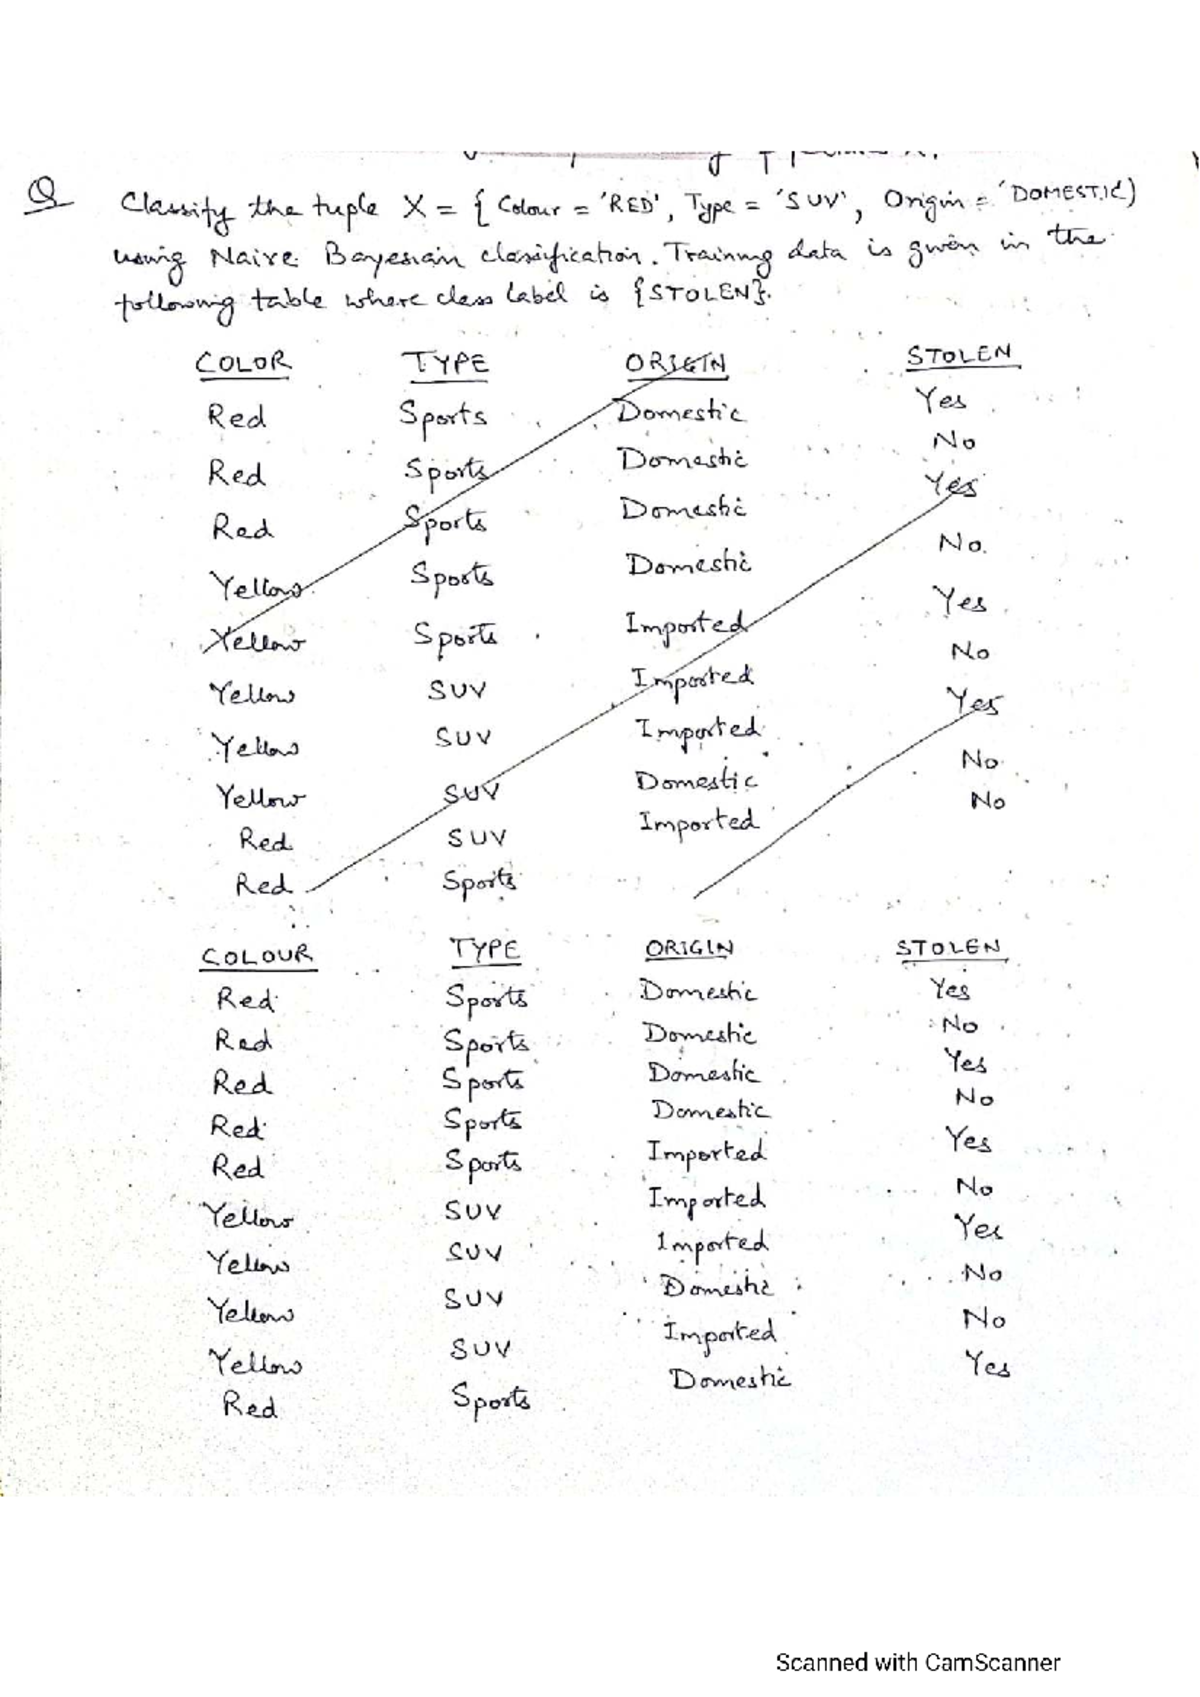 Q Classify the tuple X = { Colour = 'RED', Type = 'SUV', Origin = 'DOMESTIC)
using Naive Bayesian classification. Training data is given in the
following table where class label is {STOLEN}.
COLOR TYPE ORIGIN STOLEN
Red Sports Domestic Yes
Red Sports Domestic No
Red Sports Domestic Yes
Yellow Sports Domestic No.
Yellow Sports Imported Yes
Yellow SUV Imported No
Yellow SUV Imported Yes
Yellow SUV Domestic No
Red SUV Imported No
Red Sports
COLOUR TYPE ORIGIN STOLEN
Red Sports Domestic Yes
Red Sports Domestic No
Red Sports Domestic Yes
Red Sports Domestic No
Red Sports Imported Yes
Yellow SUV Imported No
Yellow SUV Imported Yes
Yellow SUV Domestic No
Yellow SUV Imported No
Red Sports Domestic Yes
Scanned with CamScanner